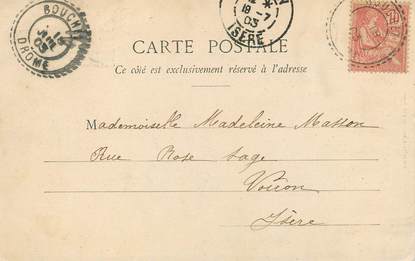 BOUCH
18
JUIL
03
DRÔME
18
03
ISÈRE
CARTE POSTALE
Ce côté est exclusivement réservé à l'adresse
Mademoiselle Madeleine Masson
Rue Rose Sage
Voiron
Isère